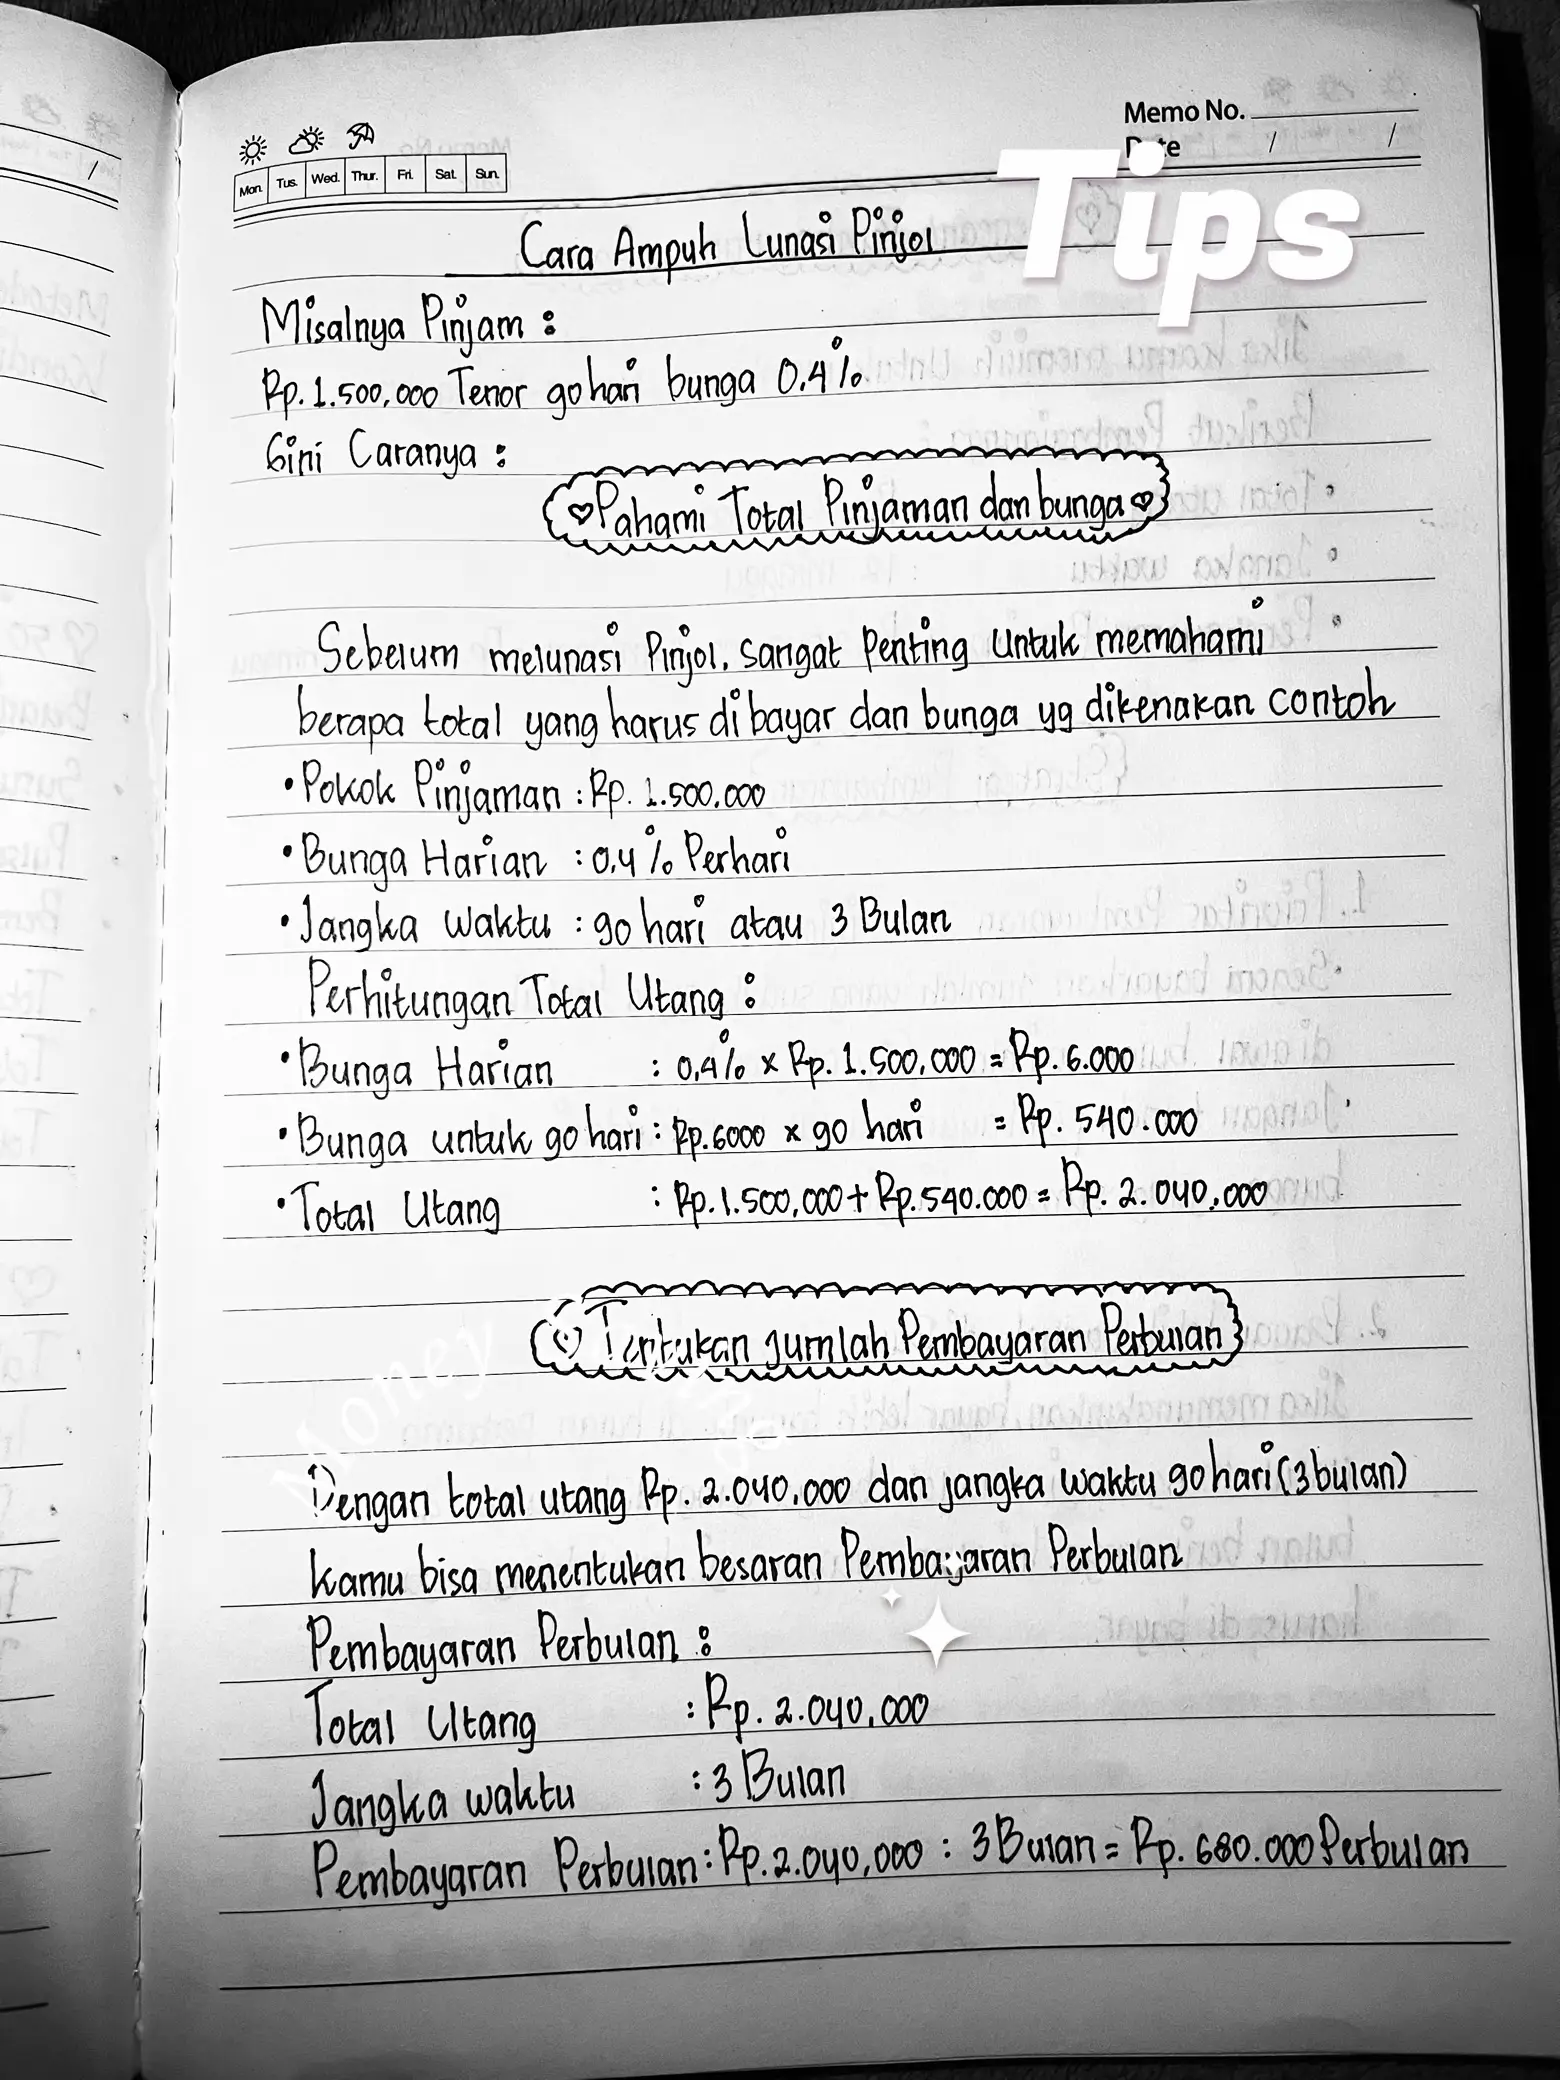 Memo No.
Date / /
Mon. Tus. Wed. Thur. Fri. Sat. Sun.
Tips
Cara Ampuh Lunasi Pinjol
Misalnya Pinjam :
Rp. 1.500.000 Tenor 90 hari bunga 0.4%
Gini Caranya :
Pahami Total Pinjaman dan bunga
Sebelum melunasi Pinjol, sangat Penting Untuk memahami
berapa total yang harus di bayar dan bunga yg dikenakan contoh
• Pokok Pinjaman : Rp. 1.500.000
• Bunga Harian : 0.4% Perhari
• Jangka waktu : 90 hari atau 3 Bulan
Perhitungan Total Utang :
• Bunga Harian : 0,4% x Rp. 1.500,000 = Rp. 6.000
• Bunga untuk 90 hari : Rp.6000 x 90 hari = Rp. 540.000
• Total Utang : Rp.1.500,000 + Rp.540.000 = Rp. 2.040,000
Tentukan Jumlah Pembayaran Perbulan
Money
Dengan total utang Rp. 2.040,000 dan jangka waktu 90 hari (3 bulan)
kamu bisa menentukan besaran Pembayaran Perbulan
Pembayaran Perbulan :
Total Utang : Rp. 2.040,000
Jangka waktu : 3 Bulan
Pembayaran Perbulan : Rp.2.040,000 : 3 Bulan = Rp. 680.000 Perbulan